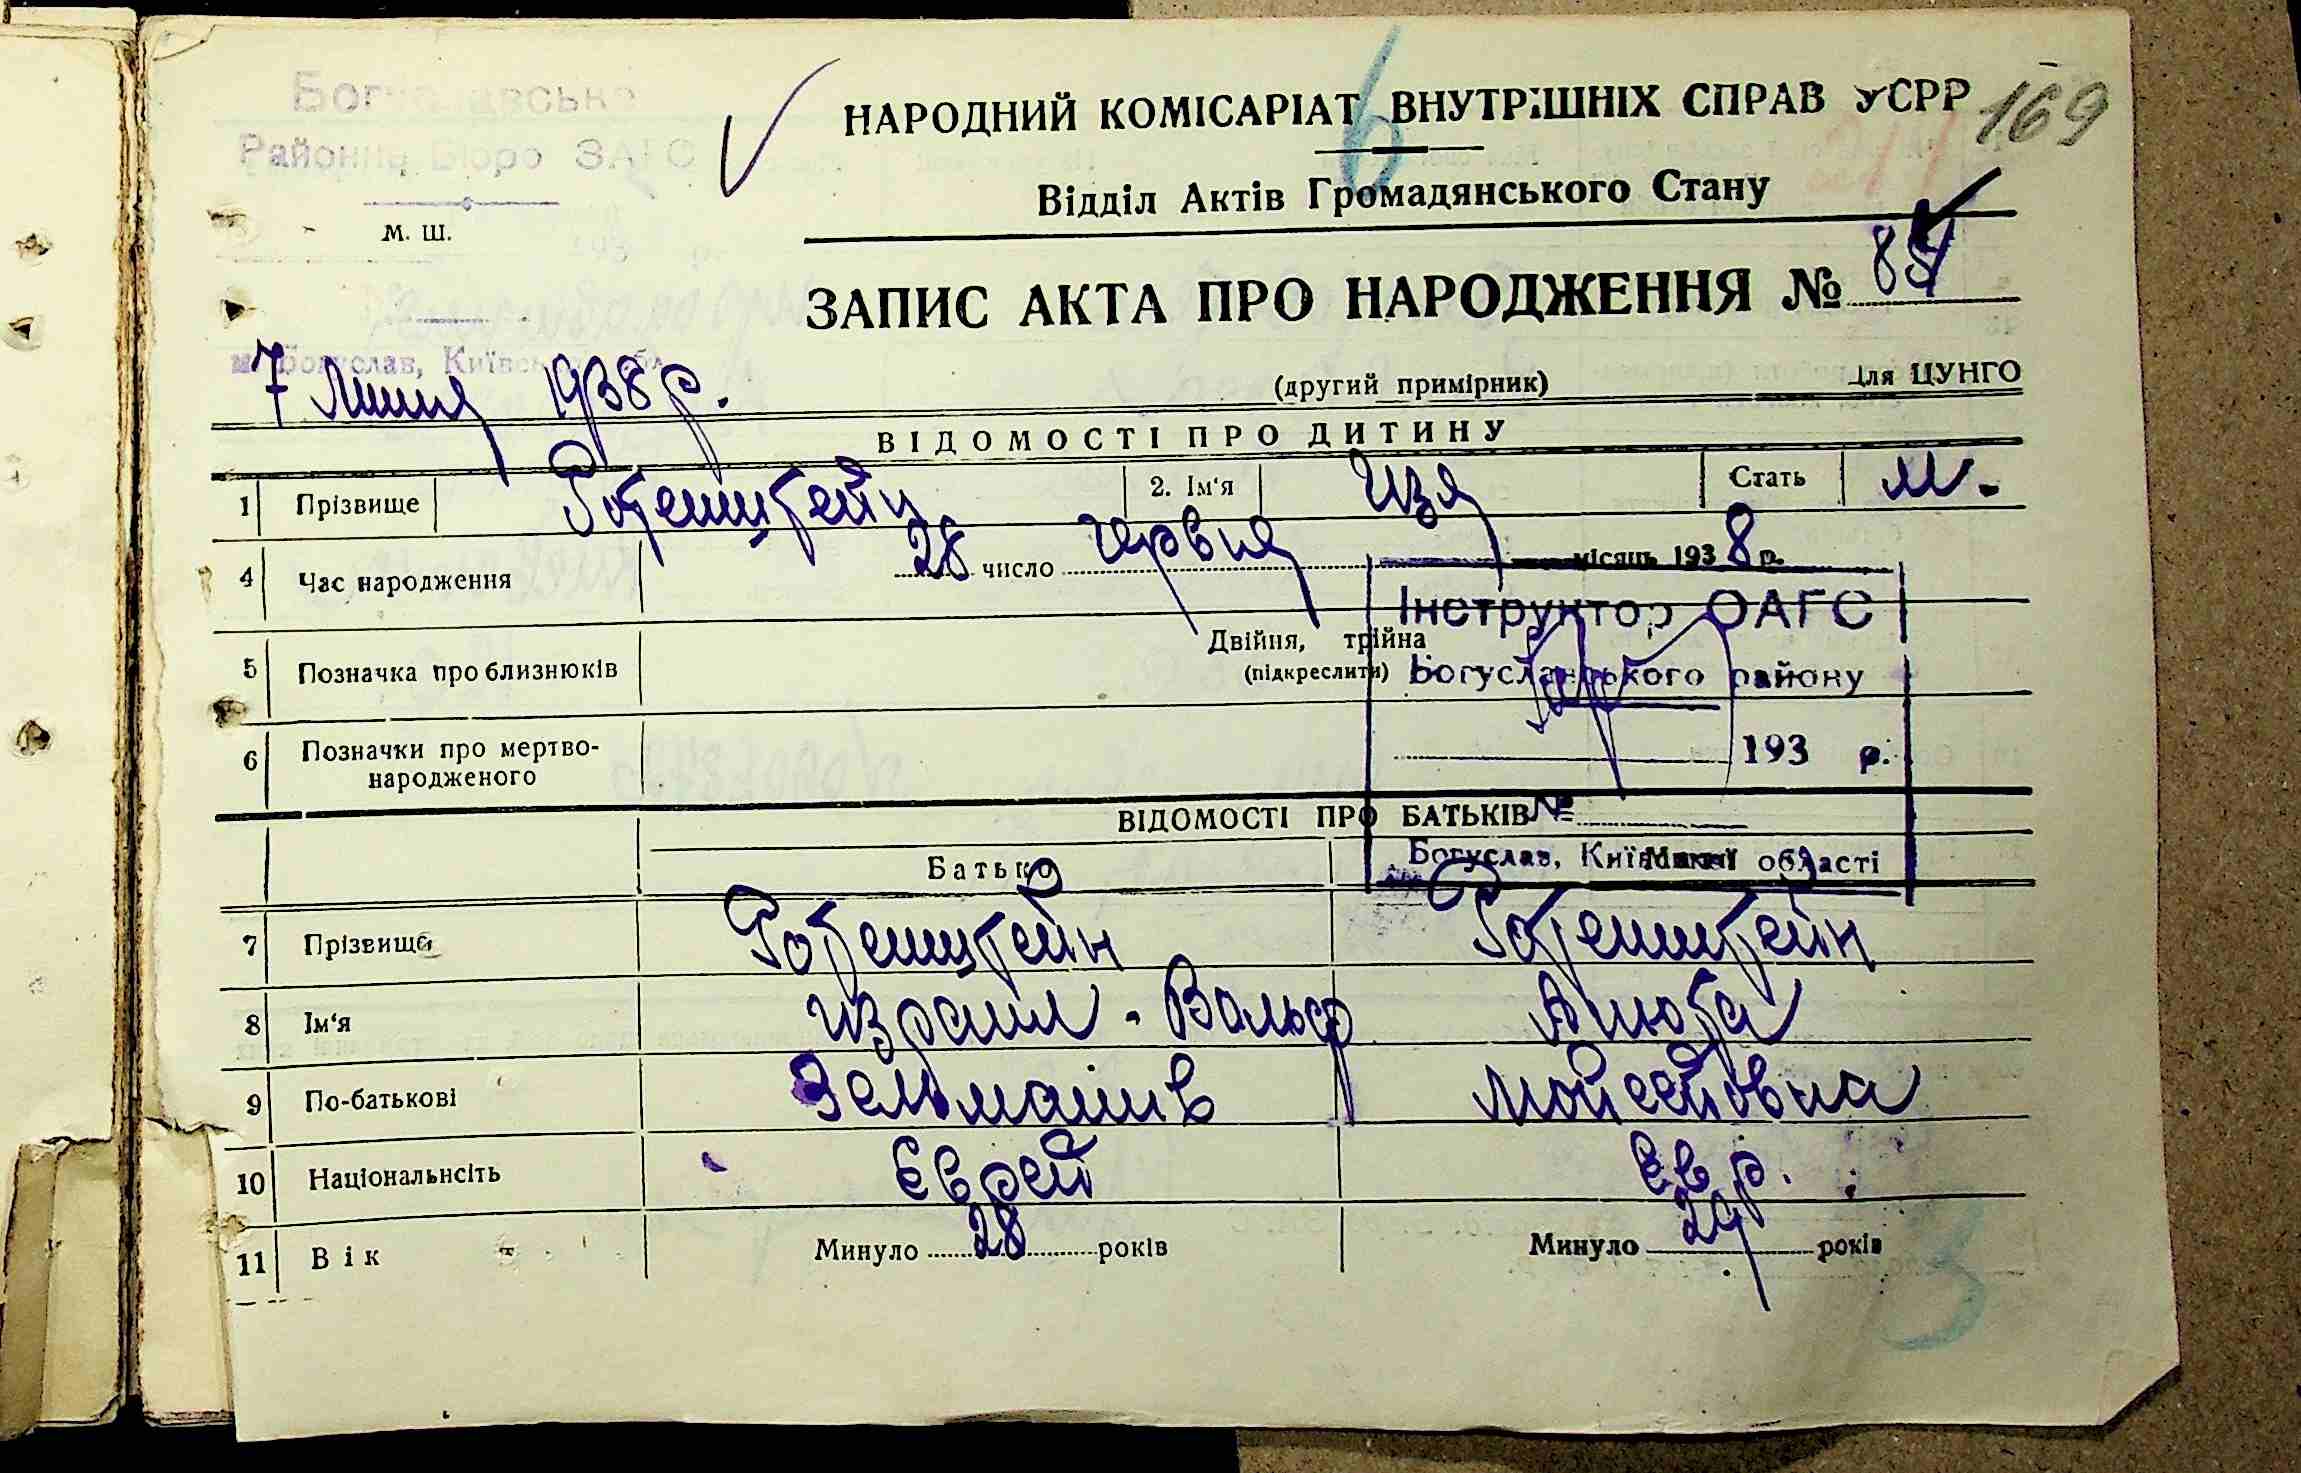 169
Богуславське
Районне Бюро ЗАГС
М. Ш.
м. Богуслав, Київської обл.
НАРОДНИЙ КОМІСАРІАТ ВНУТРІШНІХ СПРАВ УСРР
6
Відділ Актів Громадянського Стану
ЗАПИС АКТА ПРО НАРОДЖЕННЯ №
7 Липня 1938 р.
(другий примірник) Для ЦУНГО
ВІДОМОСТІ ПРО ДИТИНУ
1 Прізвище Ротенштейн 2. Ім'я Изя Стать м.
4 Час народження 28 число червня місяць 1938 р.
Інструктор ОАГС
5 Позначка про близнюків Двійня, трійна
(підкреслити) Богуславського району
6 Позначки про мертво-
народженого
193 р.
ВІДОМОСТІ ПРО БАТЬКІВ №
Батько Мати
Богуслав, Київської області
7 Прізвище Ротенштейн Ротенштейн
8 Ім'я Израил - Вольф Анюта
9 По-батькові Зельманів Мойсейовна
10 Національнсіть Єврей Евр.
11 Вік Минуло 28 років Минуло 29 років
3